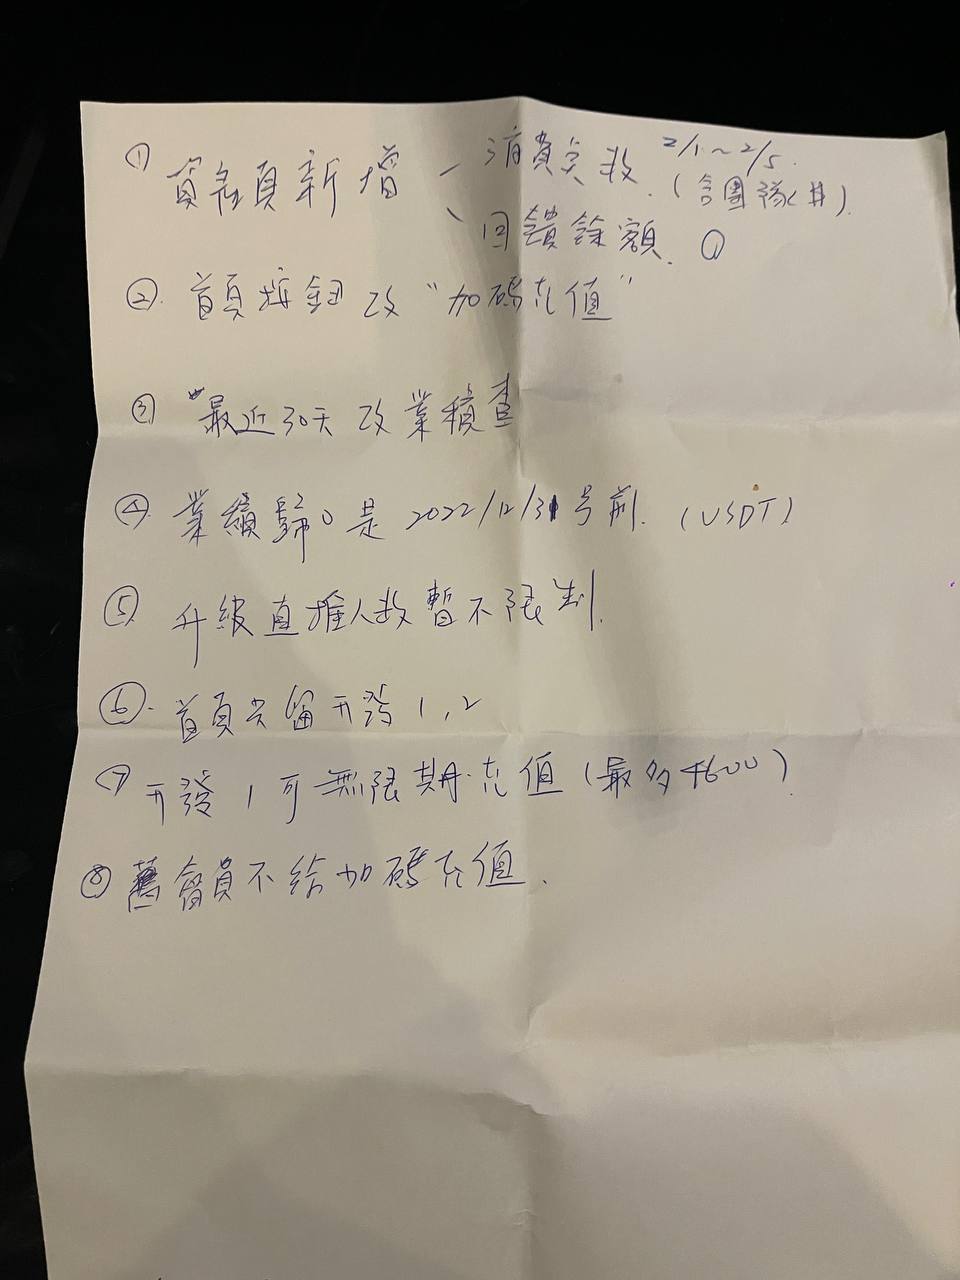 ① 頁新增 - 消費 2/1～2/5.
(含團隊).
、回饋餘額. ①
②. 首頁按鈕改“加碼充值”
③ “最近30天改業積查
④. 業績歸0是2022/12/31号前. (USDT)
⑤ 升級直推人数暫不限制.
⑥. 首頁只留开發1,2
⑦ 开發1可無限期充值(最多4600).
⑧ 舊會員不給加碼充值.